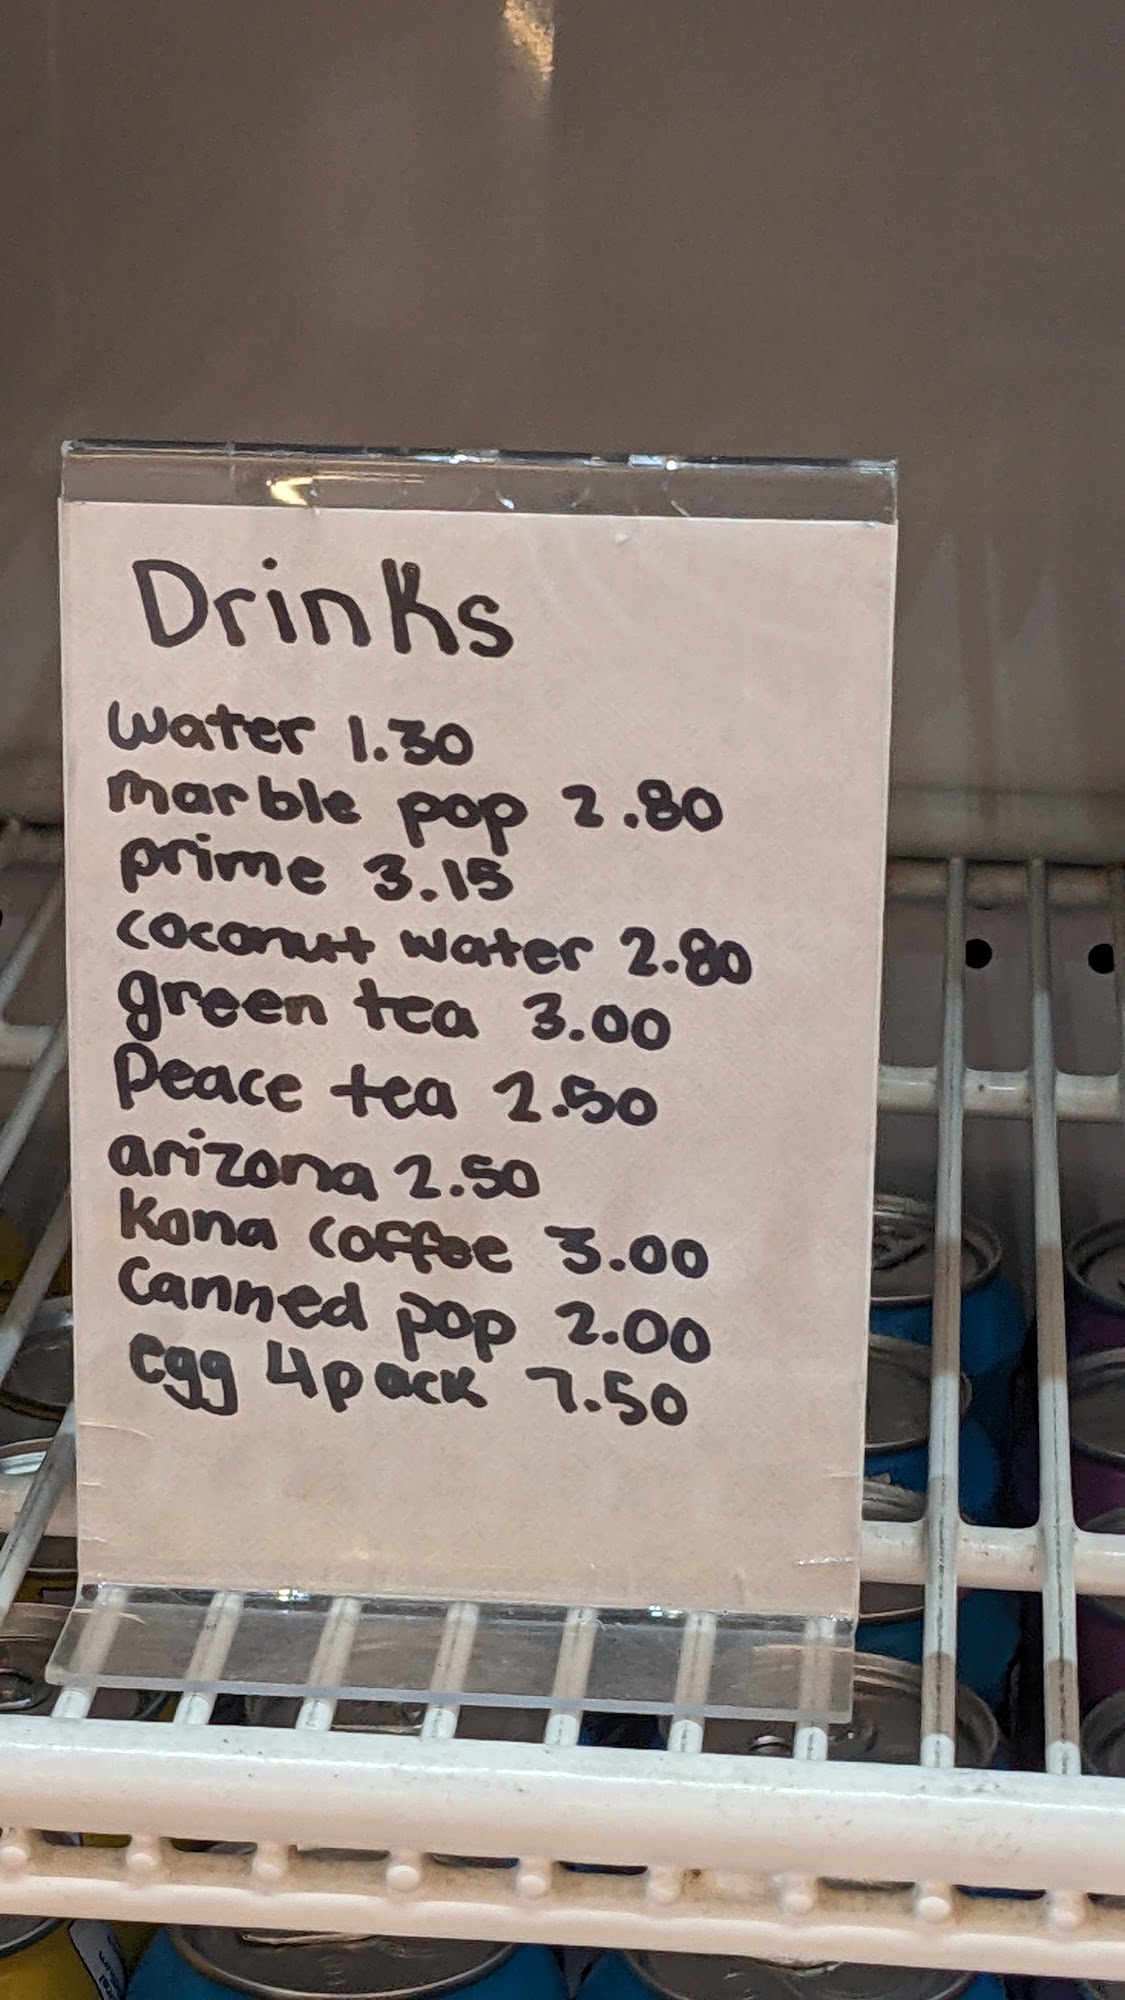 Drinks
water 1.30
marble pop 2.80
prime 3.15
coconut water 2.80
green tea 3.00
Peace tea 2.50
arizona 2.50
Kona coffee 3.00
Canned pop 2.00
egg 4pack 7.50